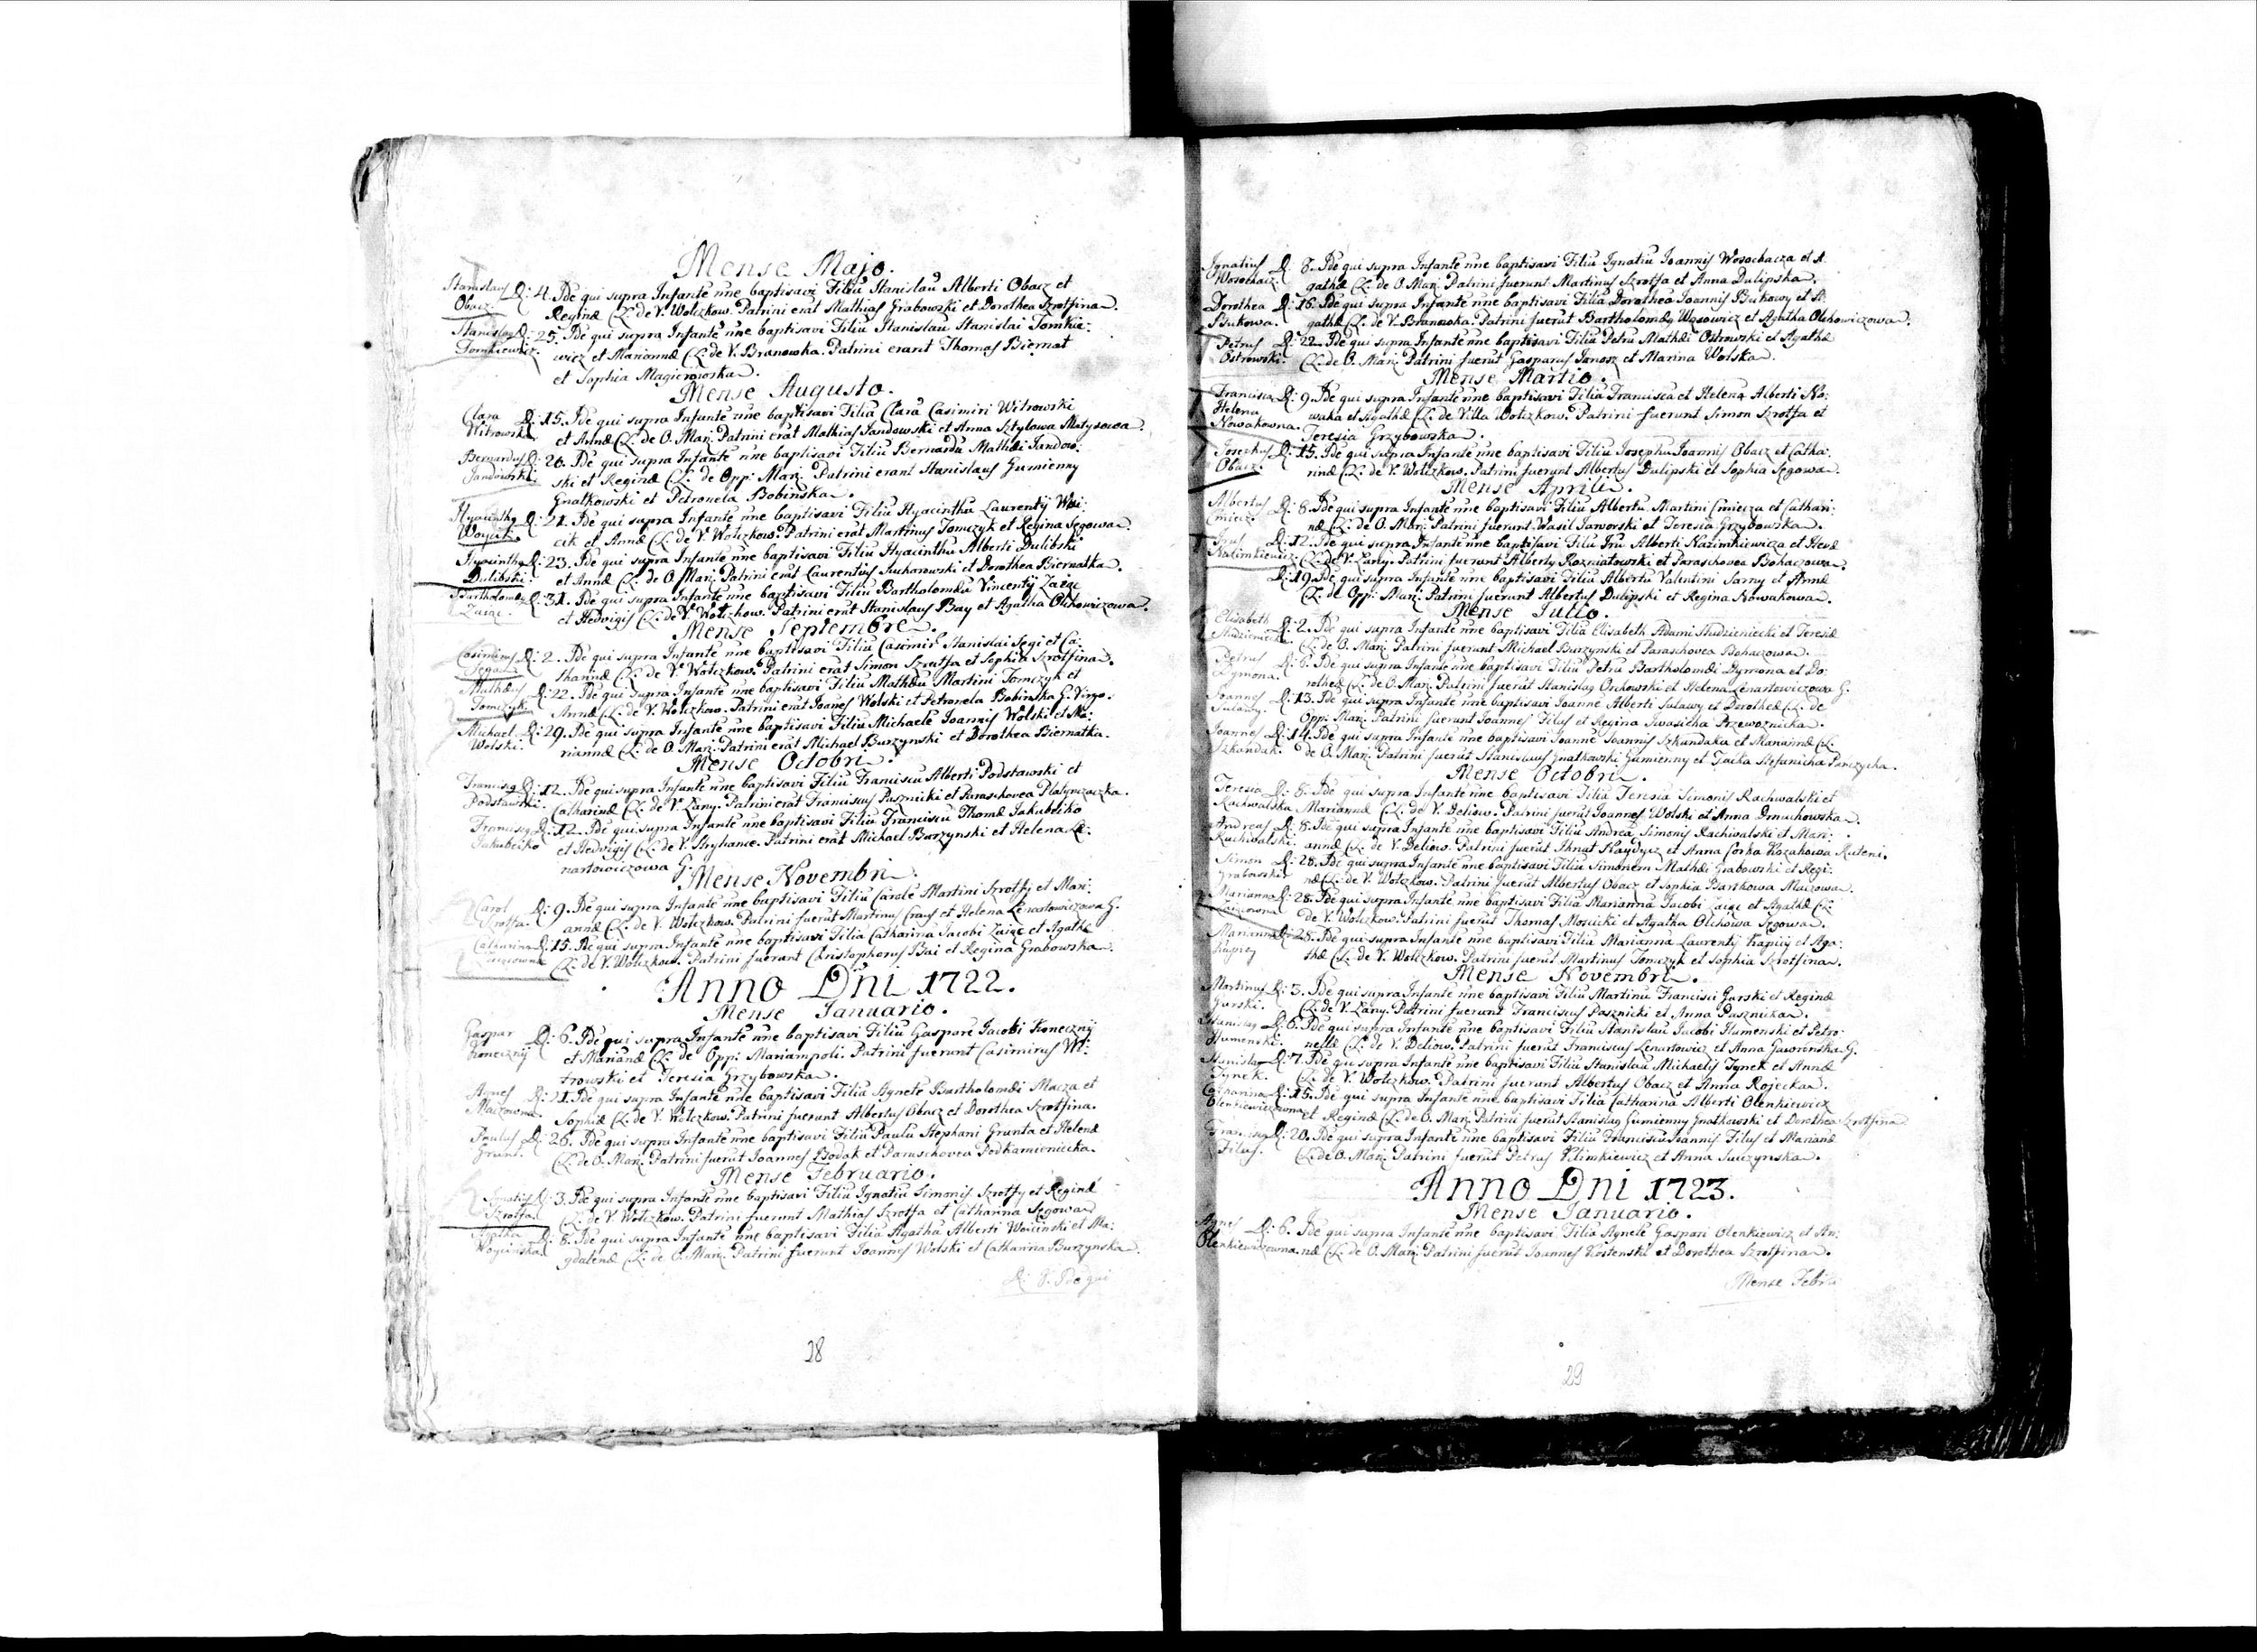 Mense Majo.
Stanislaus D: 4. Ide qui supra Infante nne baptisavi Filiu Stanislau Alberti Obacz et
Obacz. Reginæ CL: de V. Wolczkow. Patrini erat Mathias Grabowski et Dorothea Szrotsina.
Stanislag D: 25. Ide qui supra Infante nne baptisavi Filiu Stanislau Stanislai Tomkie:
Tomkiewicz. wicz et Mariannæ CL: de V. Branowka. Patrini erant Thomas Biernat
et Sophia Magierowska.
Mense Augusto.
Clara D: 15. Ide qui supra Infante nne baptisavi Filia Clara Casimiri Witrowski
Witrowski et Annæ CL: de O. Marj: Patrini erat Mathias Jandowski et Anna Sztylowa Matysowa.
Bernardus D: 20. Ide qui supra Infante nne baptisavi Filiu Bernardu Mathæi Jandow:
Jandowski. ski et Reginæ CL: de Opp: Marj: Patrini erant Stanislaus Gumienny
Gnatkowski et Petronela Bobinska.
Hyacinthg D: 21. Ide qui supra Infante nne baptisavi Filiu Hyacinthu Laurentij Woi:
Woycik cik et Annæ CL: de V. Wolczkow. Patrini erat Martinus Tomczyk et Regina Segowa.
Hyacinthg D: 23. Ide qui supra Infante nne baptisavi Filiu Hyacinthu Alberti Dulibski
Dulibski. et Annæ CL: de O. Marj: Patrini erat Laurentius Sucharowski et Dorothea Biernatka.
Bartholomeg D: 31. Ide qui supra Infante nne baptisavi Filiu Bartholomæu Vincentij Zaięc
Zaięc. et Hedvigis CL: de V. Wolczkow. Patrini erat Stanislaus Bay et Agatha Olchowiczowa.
Mense Septembre.
Casimirus D: 2. Ide qui supra Infante nne baptisavi Filiu Casimir Stanislai Segi et Ca:
Sega. tharinæ CL: de V. Wolczkow. Patrini erat Simon Szrotsa et Sophia Szrotsina.
Mathæus D: 22. Ide qui supra Infante nne baptisavi Filiu Mathæu Martini Tomczyk et
Tomczyk Annæ CL: de V. Wolczkow. Patrini erat Joanes Wolski et Petronela Bobinska G. Virgo.
Michael D: 29. Ide qui supra Infante nne baptisavi Filiu Michaele Joannis Wolski et Ma:
Wolski. riannæ CL: de O. Marj: Patrini erat Michael Burzynski et Dorothea Biernatka.
Mense Octobri.
Francisg D: 12. Ide qui supra Infante nne baptisavi Filiu Franciscu Alberti Podstawski et
Podstawski. Catharinæ CL: de V. Łany. Patrini erat Franciscus Pasznicki et Paraschovea Platynczaczka.
Francisg D: 12. Ide qui supra Infante nne baptisavi Filiu Franciscu Thomæ Jakubeiko
Jakubeiko et Hedvigis CL: de V. Stryhance. Patrini erat Michael Burzynski et Helena Le:
nartowiczowa G.
Mense Novembri.
Carol D: 9. Ide qui supra Infante nne baptisavi Filiu Carole Martini Szrotsy et Mari:
Szrotsa. annæ CL: de V. Wolczkow. Patrini fuerut Martinus Craus et Helena Lenartowiczowa G.
Catharina D: 15. Ide qui supra Infante nne baptisavi Filia Catharina Jacobi Zaięc et Agathæ
Zaięcowna CL: de V. Wolczkow. Patrini fuerant Christophorus Bai et Regina Grabowska.
Anno Dni 1722.
Mense Januario.
Gaspar D: 6. Ide qui supra Infante nne baptisavi Filiu Gaspare Jacobi Konecznij
Konecznij et Marianæ CL: de Opp: Mariampoli. Patrini fuerunt Casimirus Wi:
trowski et Teresia Grzybowska.
Agnes D: 21. Ide qui supra Infante nne baptisavi Filia Agnete Bartholomæi Macza et
Maczowna. Sophiæ CL: de V. Wolczkow. Patrini fuerunt Albertus Obacz et Dorothea Szrotsina.
Paulus D: 26. Ide qui supra Infante nne baptisavi Filiu Paulu Stephani Grunta et Helenæ
Grunt. CL: de O. Marj: Patrini fuerut Joannes Bodak et Paraschovea Podkamieniecka.
Mense Februario.
Ignatius D: 3. Ide qui supra Infante nne baptisavi Filiu Ignatiu Simonis Szrotsy et Reginæ
Szrotsa. CL: de V. Wolczkow. Patrini fuerunt Mathias Szrotsa et Catharina Segowa.
Agatha D: 8. Ide qui supra Infante nne baptisavi Filia Agatha Alberti Woicinski et Ma:
Woycinska. gdalenæ CL: de O. Marj: Patrini fuerunt Joannes Wolski et Catharina Burzynska.
D: 8. Ide qui
28
Ignatius D: 8. Ide qui supra Infante nne baptisavi Filiu Ignatiu Joannis Wosochacza et A:
Wosochacz. gathæ CL: de O. Marj: Patrini fuerunt Martinus Szrotsa et Anna Dulipska.
Dorothea D: 16. Ide qui supra Infante nne baptisavi Filia Dorothea Joannis Bukowy et A:
Bukowa. gathæ CL: de V. Branowka. Patrini fuerut Bartholomæg Wąsowicz et Agatha Olchowiczowa.
Petrus D: 22. Ide qui supra Infante nne baptisavi Filiu Petru Mathæi Ostrowski et Agathæ
Ostrowski. CL: de O. Marj: Patrini fuerut Gasparus Janosz et Marina Wolska.
Mense Martio.
Francisca D: 9. Ide qui supra Infante nne baptisavi Filia Francisca et Helena Alberti No:
Helena waka et Agathæ CL: de Villa Wolczkow. Patrini fuerunt Simon Szrotsa et
Nowakowna. Teresia Grzybowska.
Josephus D: 15. Ide qui supra Infante nne baptisavi Filiu Josephu Joannis Obacz et Catha:
Obacz. rinæ CL: de V. Wolczkow. Patrini fuerunt Albertus Dulipski et Sophia Segowa.
Mense Aprili.
Albertus D: 6. Ide qui supra Infante nne baptisavi Filiu Albertu Martini Cmiecza et Cathari:
Cmiecz. næ CL: de O. Marj: Patrini fuerunt Wasil Jaworski et Teresia Grzybowska.
D: 12. Ide qui supra Infante nne baptisavi Filiu Alberti Kazimkiewicza et Hevæ
Kazimkiewicz. CL: de V. Łany. Patrini fuerunt Alberty Rozniatowski et Paraschovea Bohaczowa.
D: 19. Ide qui supra Infante nne baptisavi Filiu Albertu Valentini Sarny et Annæ
CL: de Opp: Marj: Patrini fuerunt Albertus Dulipski et Regina Nowakowa.
Mense Julio.
Elisabeth D: 2. Ide qui supra Infante nne baptisavi Filia Elisabeth Adami Studzieniecki et Teresiæ
CL: de O. Marj: Patrini fuerunt Michael Burzynski et Paraschovea Bohaczowa.
Petrus D: 6. Ide qui supra Infante nne baptisavi Filiu Petru Bartholomæi Dymona et Do:
Dymona. rotheæ CL: de O. Marj: Patrini fuerut Stanislag Orchowski et Helena Lenartowiczowa G.
Joannes D: 13. Ide qui supra Infante nne baptisavi Joanne Alberti Sulawy et Dorotheæ CL: de
Sulawy. Opp: Marj: Patrini fuerunt Joannes Filus et Regina Iwasicha Przewoznicka.
Joannes D: 14. Ide qui supra Infante nne baptisavi Joanne Joannis Szkandaka et Mariannæ CL:
Szkandak. de O. Marj: Patrini fuerut Stanislaus Gnatkowski Gumienny et Jacka Stefanicha Panczycha.
Mense Octobri.
Teresia D: 8. Ide qui supra Infante nne baptisavi Filia Teresia Simonis Rachwalski et
Rachwalska Mariannæ CL: de V. Deliow. Patrini fuerut Joannes Wolski et Anna Drnuchowska.
Andreas D: 8. Ide qui supra Infante nne baptisavi Filiu Andrea Simonis Rachwalski et Mari:
Rachwalski. annæ CL: de V. Deliow. Patrini fuerut Ihnat Haydycz et Anna Sorka Kozakowa Ruteni.
Simon D: 28. Ide qui supra Infante nne baptisavi Filiu Simonem Mathæi Grabowski et Regi:
Grabowski næ CL: de V. Wolczkow. Patrini fuerut Albertus Obacz et Sophia Bartkowa Maczowa.
Marianna D: 28. Ide qui supra Infante nne baptisavi Filia Marianna Jacobi Zaięc et Agathæ CL:
Zaięcowna de V. Wolczkow. Patrini fuerut Thomas Moscicki et Agatha Olchowa Segowa.
Marianna D: 28. Ide qui supra Infante nne baptisavi Filia Marianna Laurentij Kapicij et Aga:
thæ CL: de V. Wolczkow. Patrini fuerut Martinus Tomczyk et Sophia Szrotsina.
Mense Novembri.
Martinus D: 3. Ide qui supra Infante nne baptisavi Filiu Martinu Francisci Gurski et Reginæ
Gurski. CL: de V. Łany. Patrini fuerunt Franciscus Pasznicki et Anna Pasznicka.
Stanislag D: 6. Ide qui supra Infante nne baptisavi Filiu Stanislau Jacobi Humenski et Petro:
Humenski. nellæ CL: de V. Deliow. Patrini fuerut Franciscus Lenartowicz et Anna Gaworenska G.
Stanislag D: 7. Ide qui supra Infante nne baptisavi Filiu Stanislau Michaelis Tynek et Annæ
Tynek. CL: de V. Wolczkow. Patrini fuerunt Albertus Obacz et Anna Rojecka.
Catharina D: 15. Ide qui supra Infante nne baptisavi Filia Catharina Alberti Olenkiewicz
Olenkiewiczowna et Reginæ CL: de O. Marj: Patrini fuerut Stanislag Gumienny Gnatkowski et Dorothea Szrotsina
Francisg D: 20. Ide qui supra Infante nne baptisavi Filiu Franciscu Joannis Filus et Marianæ
Filus. CL: de O. Marj: Patrini fuerut Petrus Klimkiewicz et Anna Suczynska.
Anno Dni 1723.
Mense Januario.
Agnes D: 6. Ide qui supra Infante nne baptisavi Filia Agnete Gaspari Olenkiewicz et An:
Olenkiewiczowna næ CL: de O. Marj: Patrini fuerut Joannes Kostenski et Dorothea Szrotsina.
Mense Febru
29